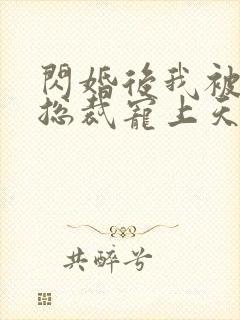 閃婚後我被
總裁寵上天
共醉兮